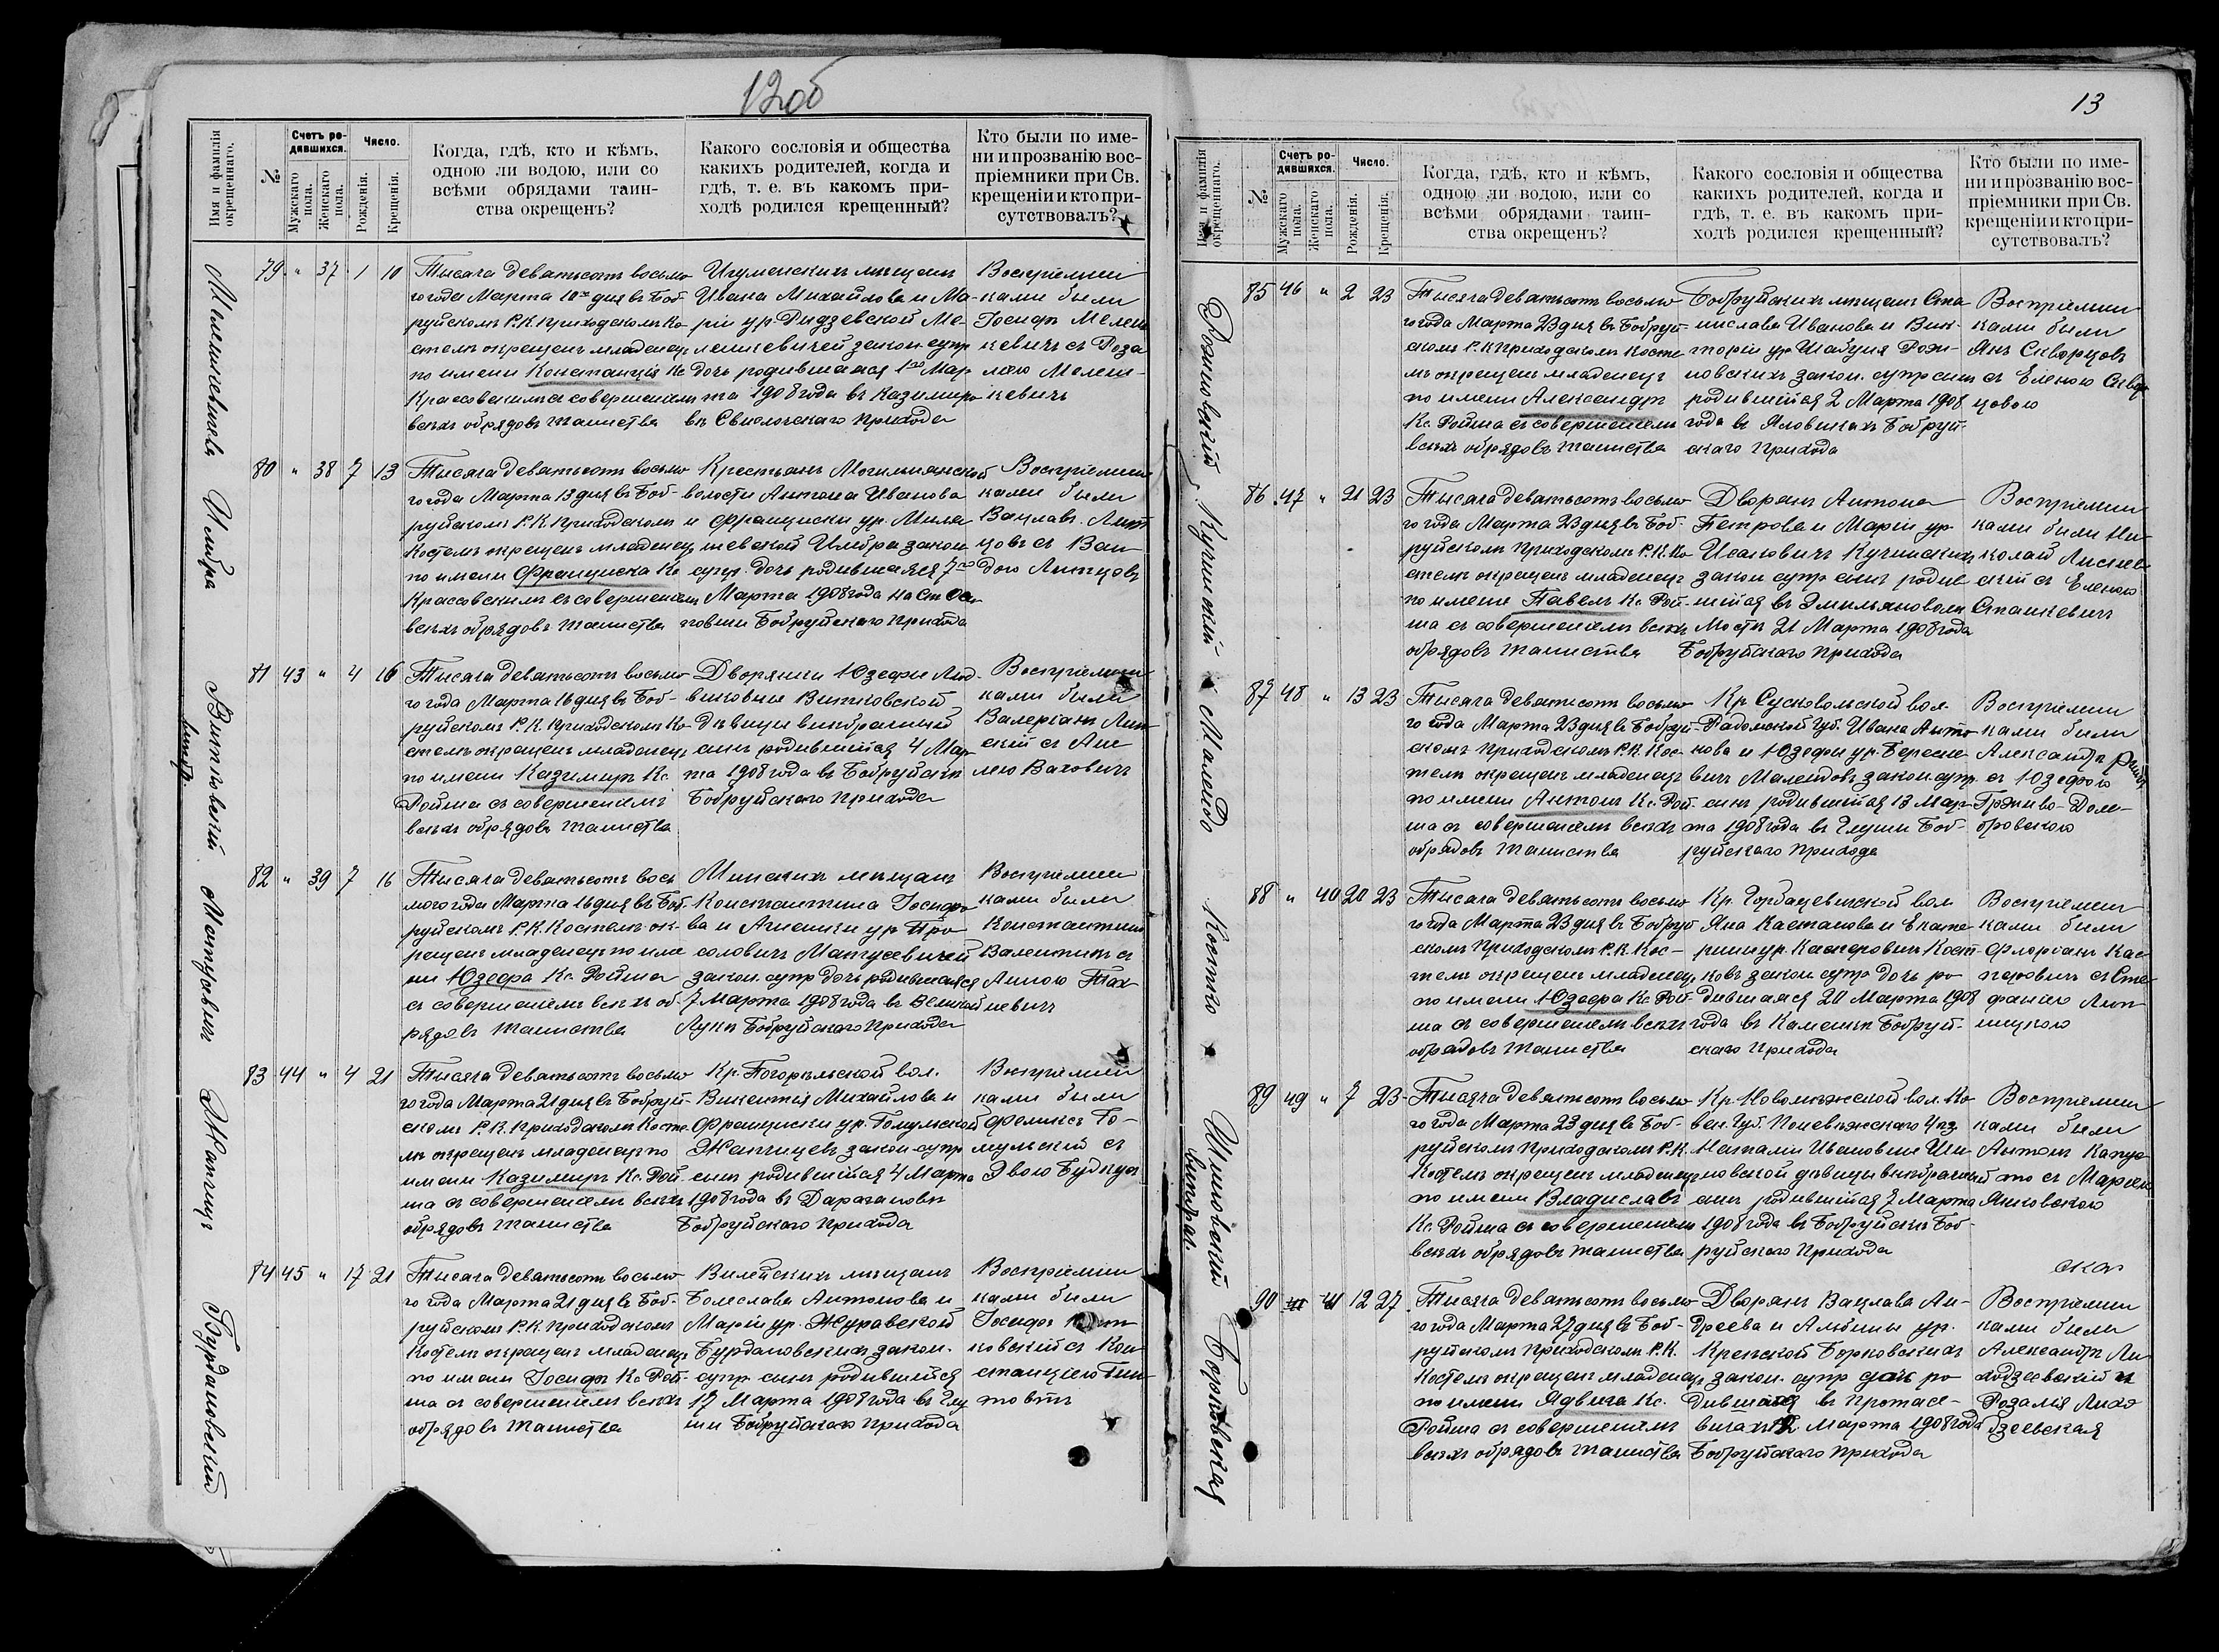 12об
Имя и фамилія окрещеннаго.
№
Счетъ родившихся.
Мужскаго пола.
Женскаго пола.
Число.
Рожденія.
Крещенія.
Когда, гдѣ, кто и кѣмъ,
одною ли водою, или со
всѣми обрядами таин-
ства окрещенъ?
Какого сословія и общества
какихъ родителей, когда и
гдѣ, т. е. въ какомъ при-
ходѣ родился крещенный?
Кто были по име-
ни и прозванію вос-
пріемники при Св.
крещеніи и кто при-
сутствовалъ?
79 " 37 1 10
Тысяча девятьсотъ восьмо
го года Марта 10го дня въ Боб
руйскомъ Р.К. приходскомъ ко
стелѣ окрещенъ младенецъ
по имени Констанція Кс
Крассовскимъ съ совершеніемъ
всѣхъ обрядовъ таинства
Игуменскихъ мѣщанъ
Ивана Михайлова и Ма-
ріи ур. Дидзевской Ме-
лешкевичей закон. супр
дочь родившаяся 1го Мар
та 1908 года въ Казимиро
вѣ Свислочскаго прихода
Воспріемни
ками были
Іосифъ Мелеш
кевичъ съ Роза
ліею Мелеш-
кевичъ
80 " 38 7 13
Тысяча девятьсотъ восьмо
го года Марта 13 дня въ Боб-
руйскомъ Р.К. приходскомъ
костелѣ окрещенъ младенецъ
по имени Франциска Кс
Крассовскимъ съ совершеніемъ
всѣхъ обрядовъ таинства
Крестьянъ
волости Антона Иванова
и Франциски ур.
закон
супр. дочь родившаяся 7го
Марта 1908 года на ст.
Бобруйскаго прихода
Воспріемни
ками были
Вацлавъ
81 43 " 4 16
Витковскій
внѣбр.
Тысяча девятьсотъ восьмо
го года Марта 16 дня въ Боб-
руйскомъ Р.К. приходскомъ ко-
стелѣ окрещенъ младенецъ
по имени Казимиръ Кс.
Ройша съ совершеніемъ
всѣхъ обрядовъ таинства
Дворянки Юзефы Люд-
виковны Витковской
дѣвицы внѣбрачный
сынъ родившійся 4 Мар
та 1908 года въ Бобруйскѣ
Бобруйскаго прихода
Воспріемни
ками были
Валеріанъ
скій съ Ан
ноюВаховичъ
82 " 39 7 16
Матусевичъ
Тысяча девятьсотъ вось
мого года Марта 16 дня въ Боб
руйскомъ Р.К. костелѣ ок-
рещенъ младенецъ по име
ни Юзефа Кс. Ройша
съ совершеніемъ всѣхъ об-
рядовъ таинства
Минскихъ мѣщанъ
Константина Іосифо
ва и Агнешки ур. Про
соловичъ Матусевичей
закон. супр дочь родившаяся
7 Марта 1908 года въ Великой
Лукѣ Бобруйскаго прихода
Воспріемни
ками были
Константинъ
Валентинъ съ
Анною
невичъ
83 44 " 4 21
Тысяча девятьсотъ восьмо
го года Марта 21 дня въ Бобруй-
скомъ Р.К. приходскомъ косте
лѣ окрещенъ младенецъ по
имени Казимиръ Кс. Рой
ша съ совершеніемъ всѣхъ
обрядовъ таинства
Кр. Погорѣльской вол.
Викентія Михайлова и
Франциски ур. Гомульской
закон. супр
сынъ родившійся 4 Марта
1908 года въ Дарагановѣ
Бобруйскаго прихода
Воспріемни
ками были
Феликсъ Го-
мульскій съ
Эвою
84 45 " 17 21
Бурдановскій
Тысяча девятьсотъ восьмо
го года Марта 21 дня въ Боб-
руйскомъ Р.К. приходскомъ
костелѣ окрещенъ младенецъ
по имени Іосифъ Кс. Рой-
ша съ совершеніемъ всѣхъ
обрядовъ таинства
Вилейскихъ мѣщанъ
Болеслава Антонова и
Маріи ур. Журавской
Бурдановскихъ закон.
супр. сынъ родившійся
17 Марта 1908 года въ Глу
ши Бобруйскаго прихода
Воспріемни
ками были
Іосифъ
новскій съ Кон
станціею Гин
товтъ
13
Имя и фамилія окрещеннаго.
№
Счетъ родившихся.
Мужскаго пола.
Женскаго пола.
Число.
Рожденія.
Крещенія.
Когда, гдѣ, кто и кѣмъ,
одною ли водою, или со
всѣми обрядами таин-
ства окрещенъ?
Какого сословія и общества
какихъ родителей, когда и
гдѣ, т. е. въ какомъ при-
ходѣ родился крещенный?
Кто были по име-
ни и прозванію вос-
пріемники при Св.
крещеніи и кто при-
сутствовалъ?
85 46 " 2 23
Тысяча девятьсотъ восьмо
го года Марта 23 дня въ Бобруй-
скомъ Р.К. приходскомъ косте
лѣ окрещенъ младенецъ
по имени Александръ
Кс. Ройша съ совершеніемъ
всѣхъ обрядовъ таинства
Бобруйскихъ мѣщанъ Ста
нислава Иванова и Вик-
торіи ур. Шабуня Рож-
новскихъ закон. супр сынъ
родившійся 2 Марта 1908
года въ Яловикахъ Бобруй-
скаго прихода
Воспріемни
ками были
Янъ Скворцовъ
съ Еленою Сквор
цовою
86 47 " 21 23
Кучинскій
Тысяча девятьсотъ восьмо
го года Марта 23 дня въ Боб-
руйскомъ приходскомъ Р.К. ко
стелѣ окрещенъ младенецъ
по имени Павелъ Кс. Рой-
ша съ совершеніемъ всѣхъ
обрядовъ таинства
Дворянъ Антона
Петрова и Маріи ур.
Исаковичъ Кучинскихъ
закон. супр сынъ родив
шійся въ Эмильяновомъ
Мостѣ 21 Марта 1908 года
Бобруйскаго прихода
Воспріемни
ками были Ни
колай Лиснев
скій съ Еленою
Станкевичъ
87 48 " 13 23
Тысяча девятьсотъ восьмо
го года Марта 23 дня въ Бобруй-
скомъ приходскомъ Р.К. кос-
телѣ окрещенъ младенецъ
по имени Антонъ Кс. Рой-
ша съ совершеніемъ всѣхъ
обрядовъ таинства
Кр. Сусковольской вол
Радомской губ. Ивана Анто
нова и Юзефы ур.
закон. супр.
сынъ родившійся 13 Мар-
та 1908 года въ Глуши Боб-
руйскаго прихода
Воспріемни
ками были
Александръ
съ Юзефою
Грживо-Дом-
бровскою
88 " 40 20 23
Костко
Тысяча девятьсотъ восьмо
го года Марта 23 дня въ Бобруй
скомъ приходскомъ Р.К. кос-
телѣ окрещенъ младенецъ
по имени Юзефа Кс. Рой-
ша съ совершеніемъ всѣхъ
обрядовъ таинства
Кр. Горбацевичской вол
Яна Кастанова и Екате-
рины ур. Касперовичъ Кост-
ковъ закон. супр дочь ро
дившаяся 20 Марта 1908
года въ Каменкѣ Бобруй-
скаго прихода
Воспріемни
ками были
Флоріанъ Кас
перовичъ съ Сте-
фаніею Лип
ницкою
89 49 " 7 23
внѣбрач.
Тысяча девятьсотъ восьмо
го года Марта 23 дня въ Боб-
руйскомъ приходскомъ Р.К.
костелѣ окрещенъ младенецъ
по имени Владиславъ
Кс. Ройша съ совершеніемъ
всѣхъ обрядовъ таинства
Кр. Новомѣжской вол. Ко
вен. губ. Поневѣжскаго уѣз.
Наталіи Ивановны Ши-
новской дѣвицы внѣбрачный
сынъ родившійся 7 Марта
1908 года въ Бобруйскѣ Боб-
руйскаго прихода
Воспріемни
ками были
Антонъ Капус
то съ Маріею
Янковскою
ская
90 41 12 27
Борковская
Тысяча девятьсотъ восьмо
го года Марта 27 дня въ Боб-
руйскомъ приходскомъ Р.К.
костелѣ окрещенъ младенецъ
по имени Ядвига Кс.
Ройша съ совершеніемъ
всѣхъ обрядовъ таинства
Дворянъ Вацлава Ан-
дреева и Альбины ур.
Крепской Борковскихъ
закон. супр дочь ро
дившаяся въ Протасе-
вичахъ 12 Марта 1908 года
Бобруйскаго прихода
Воспріемни
ками были
Александръ Ли
ходзеевскій и
Розалія Лихо
дзеевская